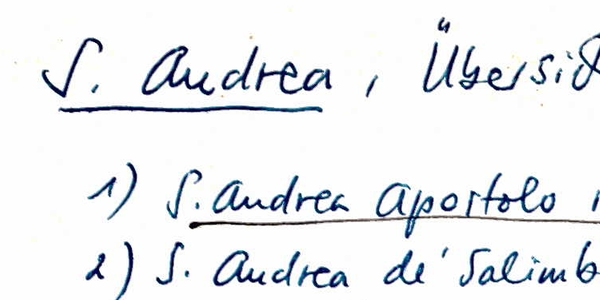 S. Andrea, Übersic
1) S. Andrea Apostolo
2) S. Andrea de' Salimb